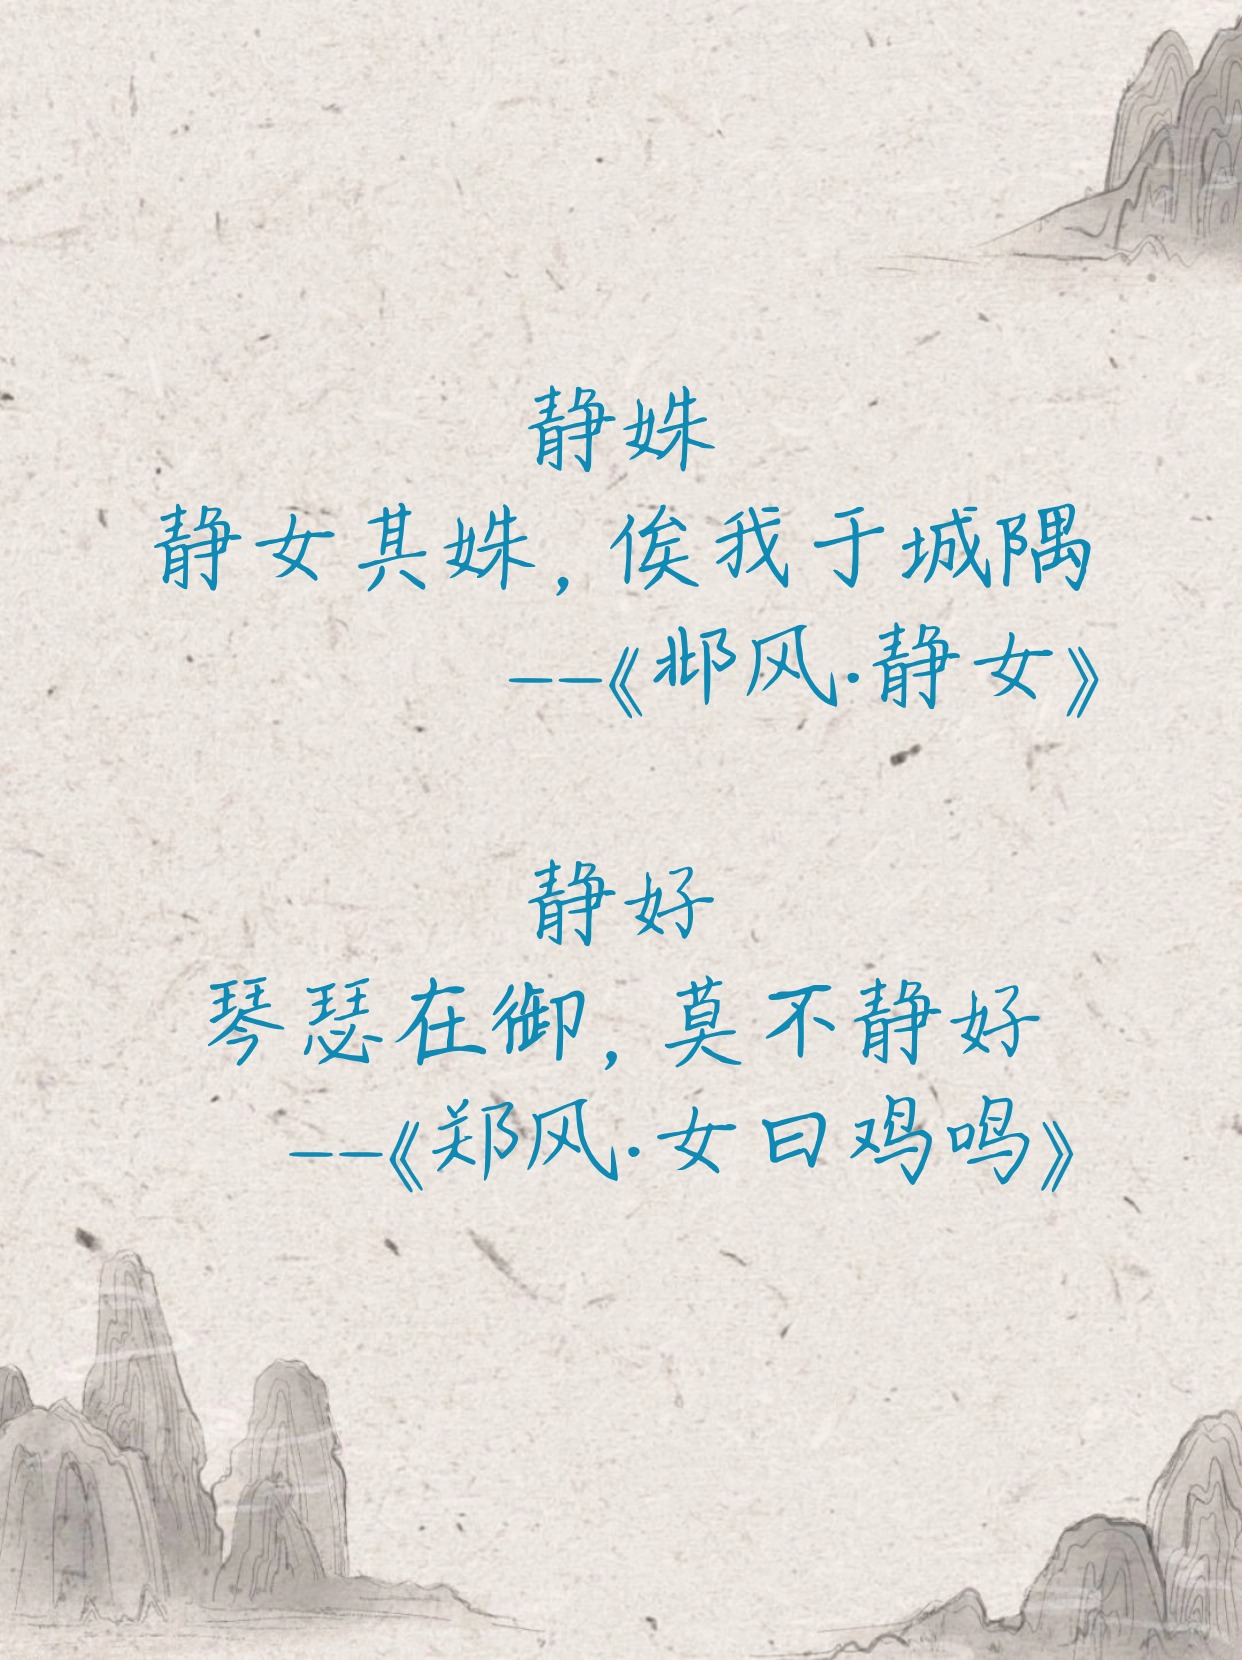 静姝
静女其姝，俟我于城隅
--《邶风·静女》
静好
琴瑟在御，莫不静好
--《郑风·女曰鸡鸣》